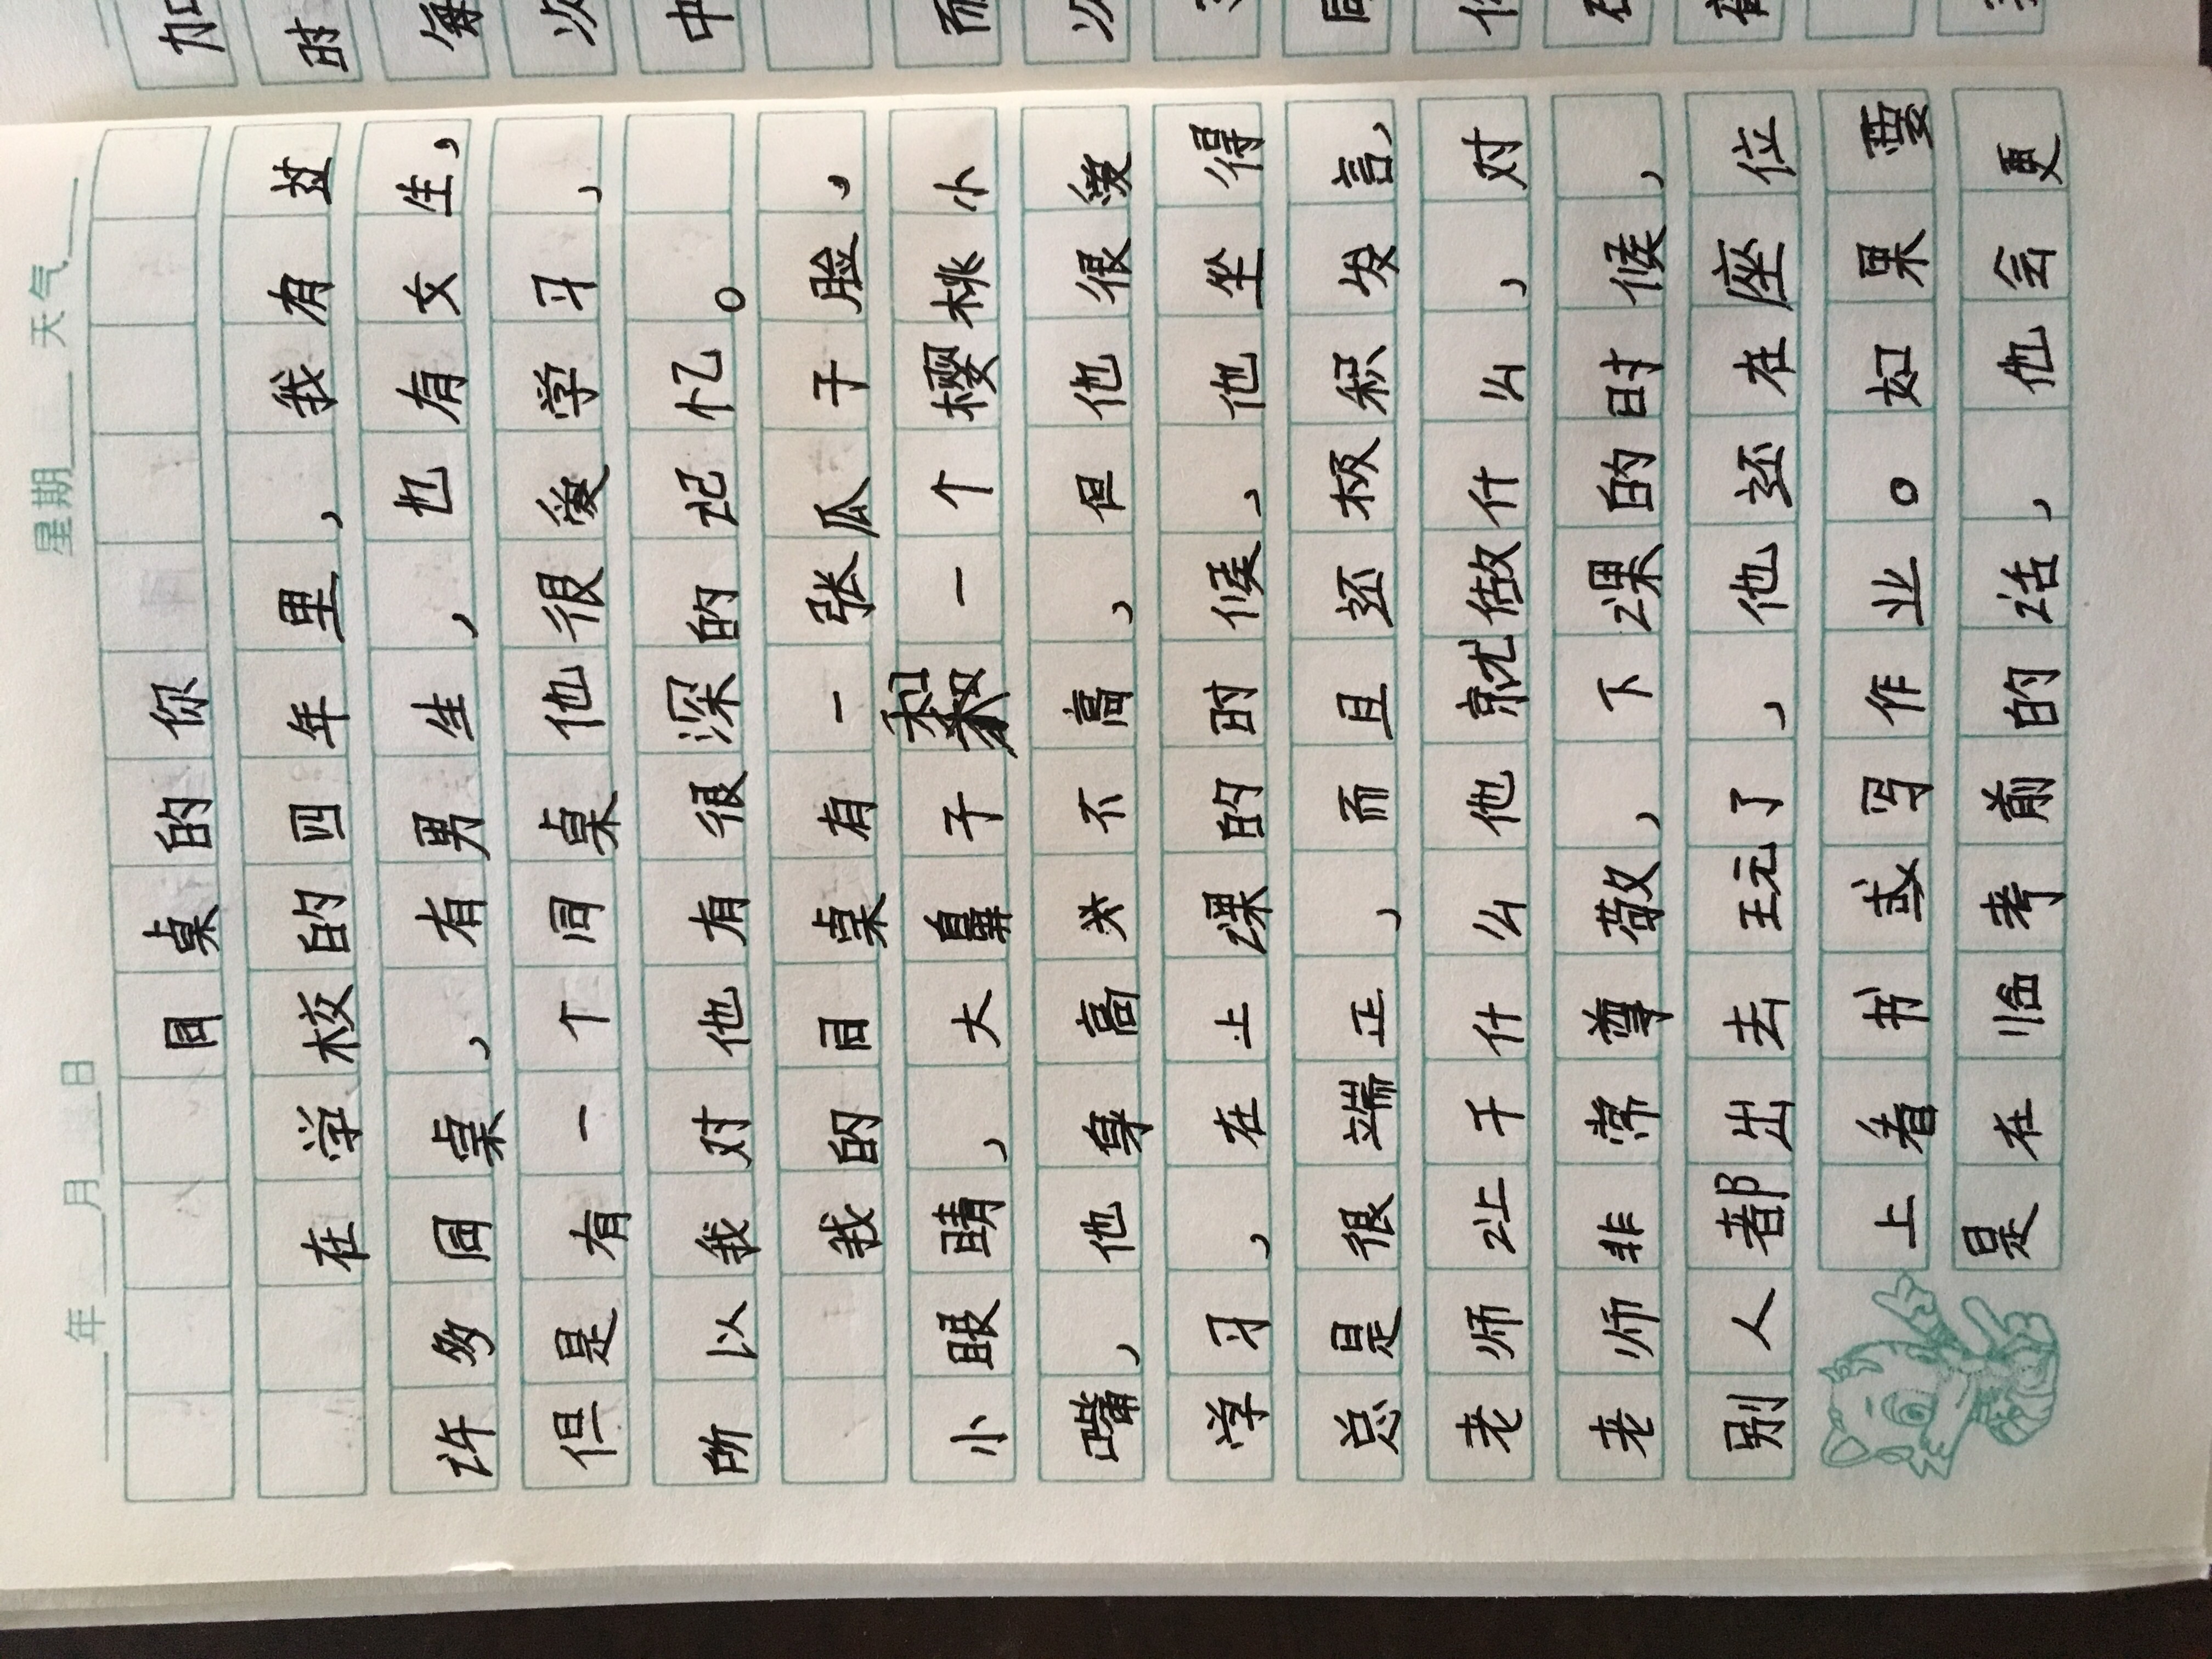 年 月 日 星期 天气
同桌的你
在学校的四年里，我有过
许多同桌，有男生，也有女生，
但是有一个同桌他很爱学习，
所以我对他有很深的记忆。
我的同桌有一张瓜子脸，
小眼睛，大鼻子和一个樱桃小
嘴，他身高并不高，但他很爱
学习，在上课的时候，他坐得
总是很端正，而且还极积发言，
老师让干什么他就做什么，对
老师非常尊敬，下课的时候，
别人都出去玩了，他还在座位
上看书或写作业。如果要
是在临考前的话，他会更